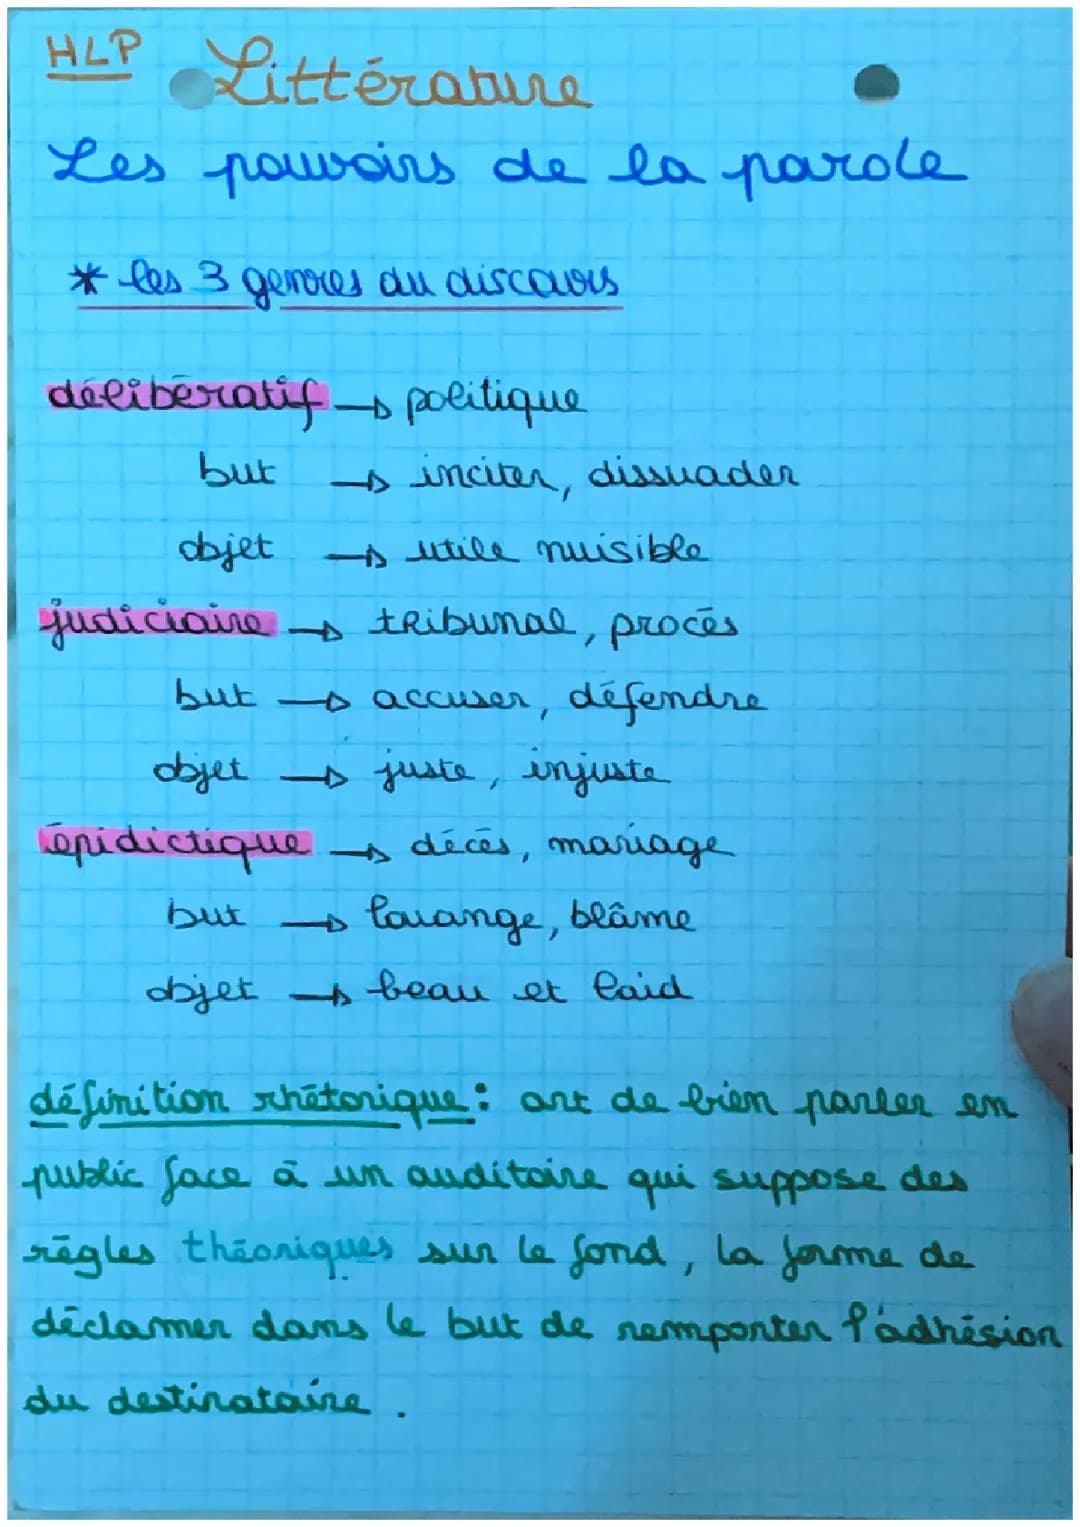 HLP
Littérature
Les pouvoirs de la parole
* les 3 genres du discours
délibératif → politique
but → inciter, dissuader
objet → utile nuisible
judiciaire → tribunal, procès
but → accuser, défendre
objet → juste, injuste
épidictique → décès, mariage
but → louange, blâme
objet → beau et laid
définition rhétorique : art de bien parler en
public face à un auditoire qui suppose des
règles théoriques sur le fond, la forme de
déclamer dans le but de remporter l'adhésion
du destinataire.